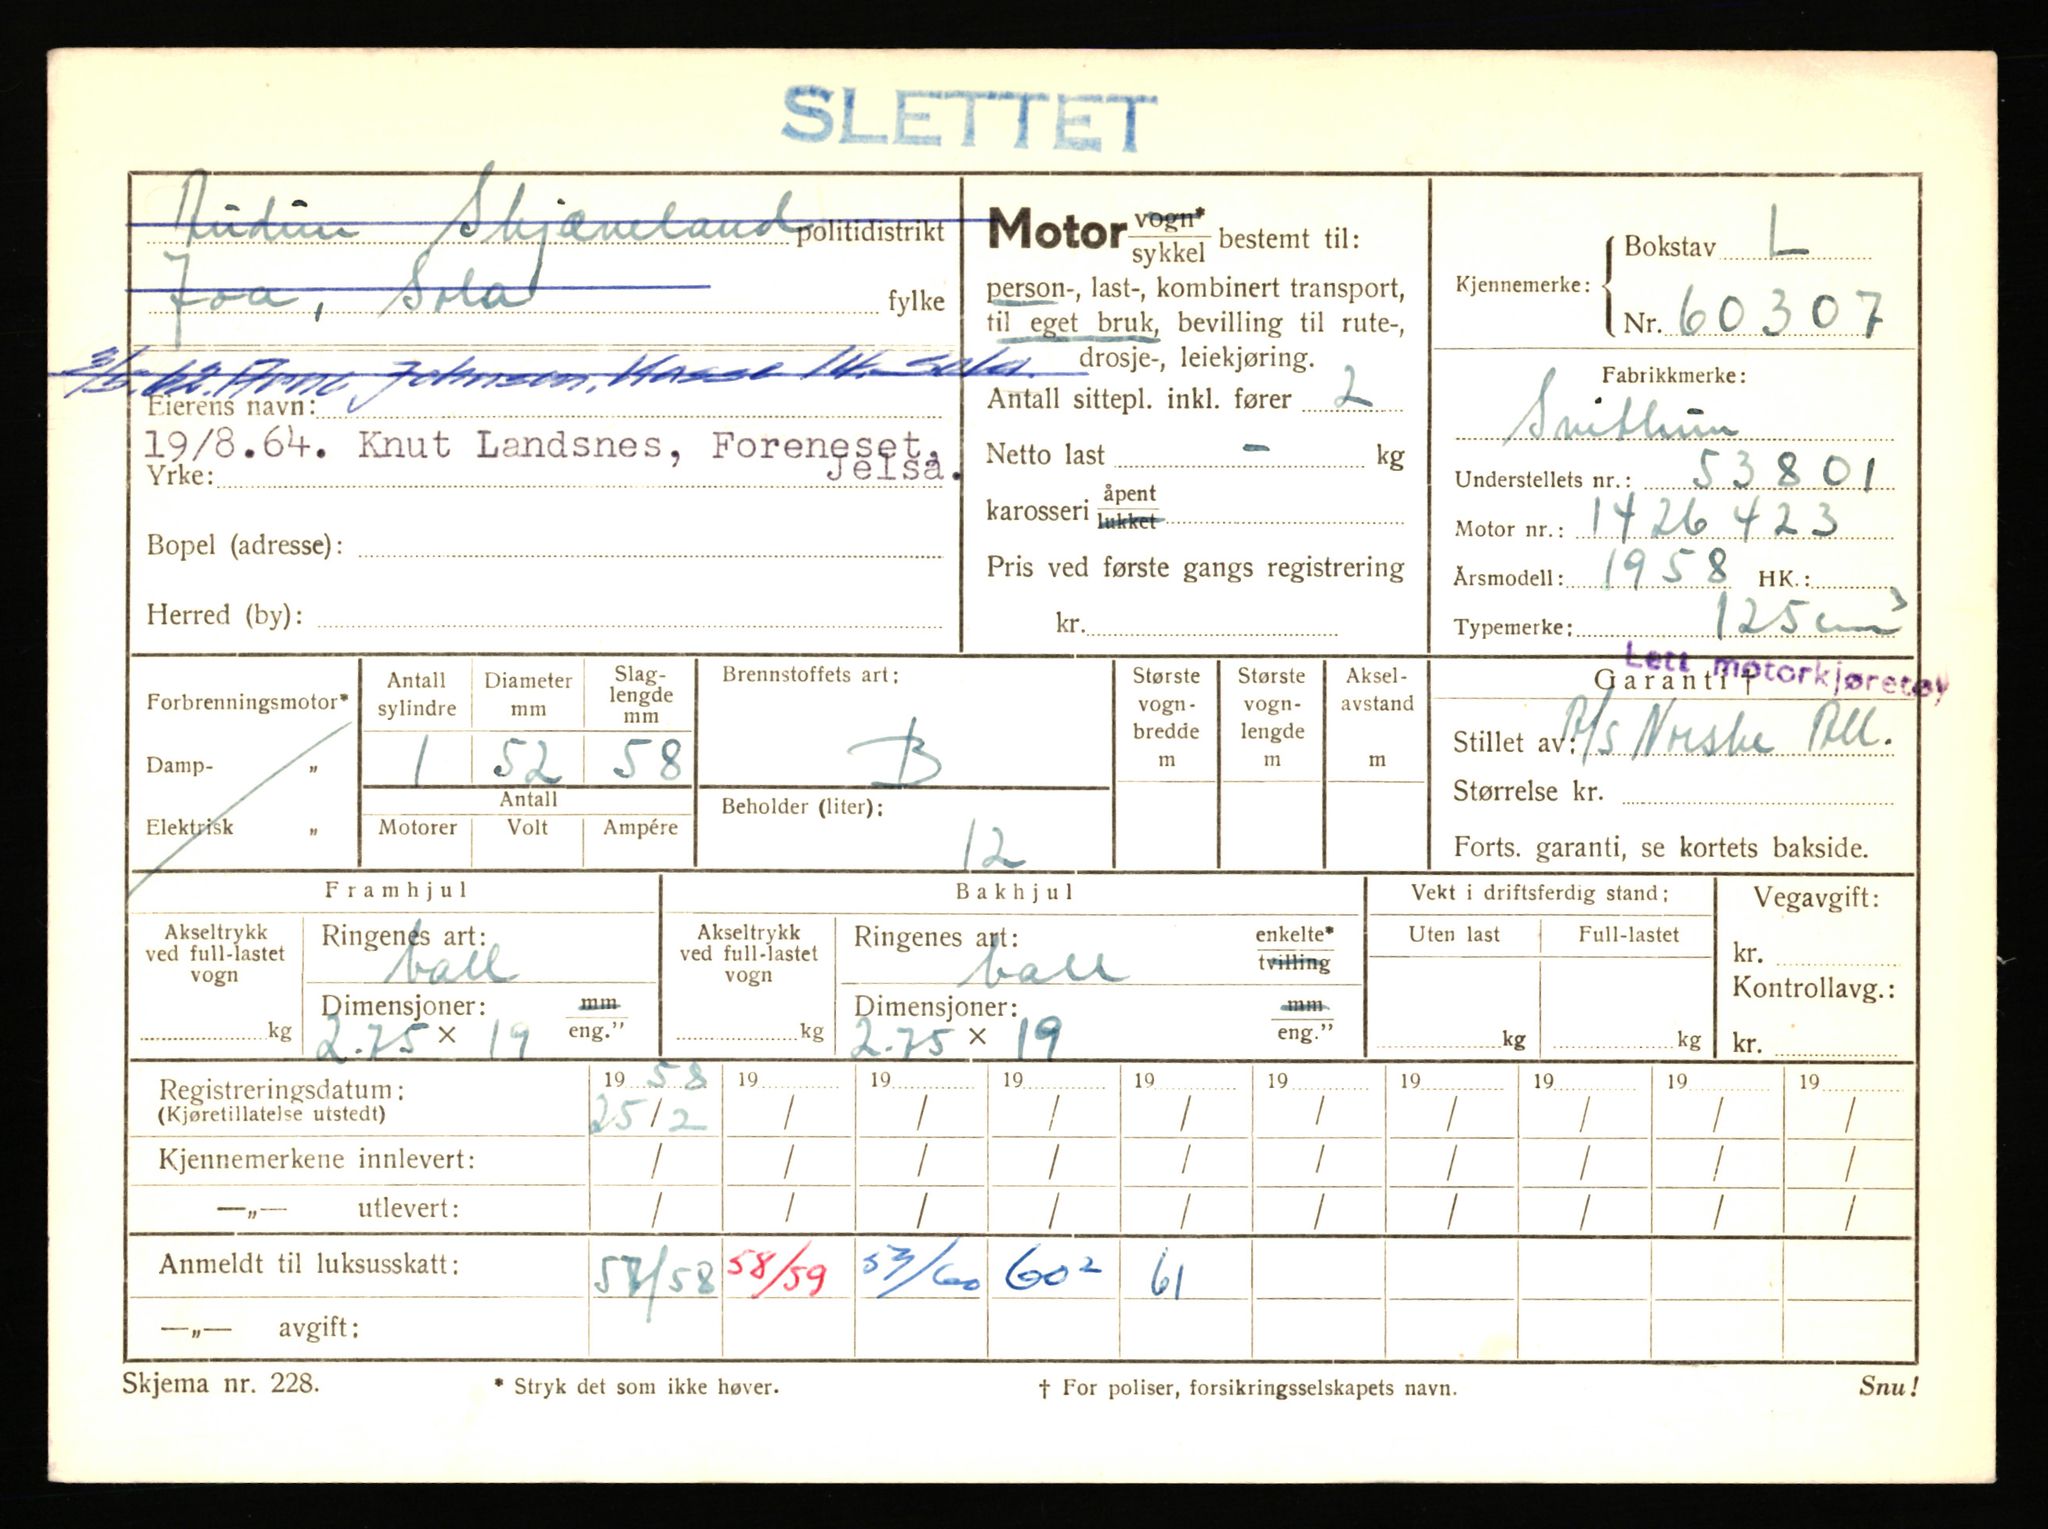 SLETTET
Audun Skjæveland politidistrikt
Joa, Sola fylke
3/5.62. Arne Johnsen, Hasse 14. Sola.
Eierens navn:
19/8.64. Knut Landsnes, Foreneset,
Jelsa.
Yrke:
Bopel (adresse):
Herred (by):
Motor vogn* / sykkel bestemt til:
person-, last-, kombinert transport,
til eget bruk, bevilling til rute-,
drosje-, leiekjøring.
Antall sittepl. inkl. fører 2
Netto last - kg
karosseri åpent / lukket
Pris ved første gangs registrering
kr.
Kjennemerke: Bokstav L
Nr. 60307
Fabrikkmerke:
Svithun
Understellets nr.: 53801
Motor nr.: 1426423
Årsmodell: 1958 HK.:
Typemerke: 125 cm³
Lett motorkjøretøy
Forbrenningsmotor*
Damp- „
Elektrisk „
Antall sylindre Diameter mm Slag-lengde mm
1 52 58
Antall
Motorer Volt Ampére
Brennstoffets art:
B
Beholder (liter):
12
Største vogn-bredde m
Største vogn-lengde m
Aksel-avstand m
Garanti †
Stillet av: A/S Norske All.
Størrelse kr.
Forts. garanti, se kortets bakside.
Framhjul
Akseltrykk ved full-lastet vogn
kg
Ringenes art:
ball
Dimensjoner: mm / eng."
2.75 × 19
Bakhjul
Akseltrykk ved full-lastet vogn
kg
Ringenes art: enkelte* / tvilling
ball
Dimensjoner: mm / eng."
2.75 × 19
Vekt i driftsferdig stand:
Uten last Full-lastet
kg kg
Vegavgift:
kr.
Kontrollavg.:
kr.
Registreringsdatum: 19 58 19 19 19 19 19 19 19 19 19
(Kjøretillatelse utstedt) 25/2 / / / / / / / / /
Kjennemerkene innlevert: / / / / / / / / / /
—„— utlevert: / / / / / / / / / /
Anmeldt til luksusskatt: 57/58 58/59 53/60 60² 61
—„— avgift:
Skjema nr. 228. * Stryk det som ikke høver. † For poliser, forsikringsselskapets navn. Snu!